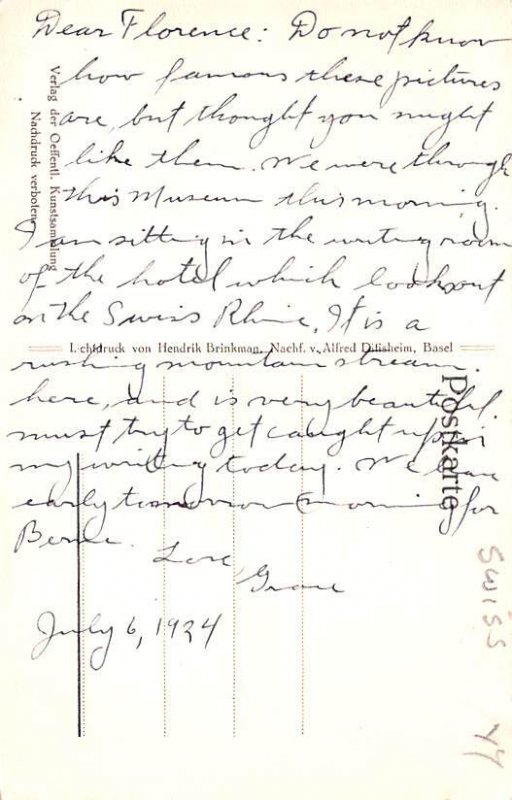 Dear Florence: Do not know
how famous these pictures
are, but thought you might
like them. We were through
this Museum this morning.
I am sitting in the writing room
of the hotel which looks out
on the Swiss Rhine. It is a
rushing mountain stream
here, and is very beautiful.
must try to get caught up in
my writing today. We leave
early tomorrow morning for
Berne.
Love,
Grace
July 6, 1934
Verlag der Oeffentl. Kunstsammlung
Nachdruck verboten
Lichtdruck von Hendrik Brinkman, Nachf. v. Alfred Ditisheim, Basel
Postkarte
SWISS